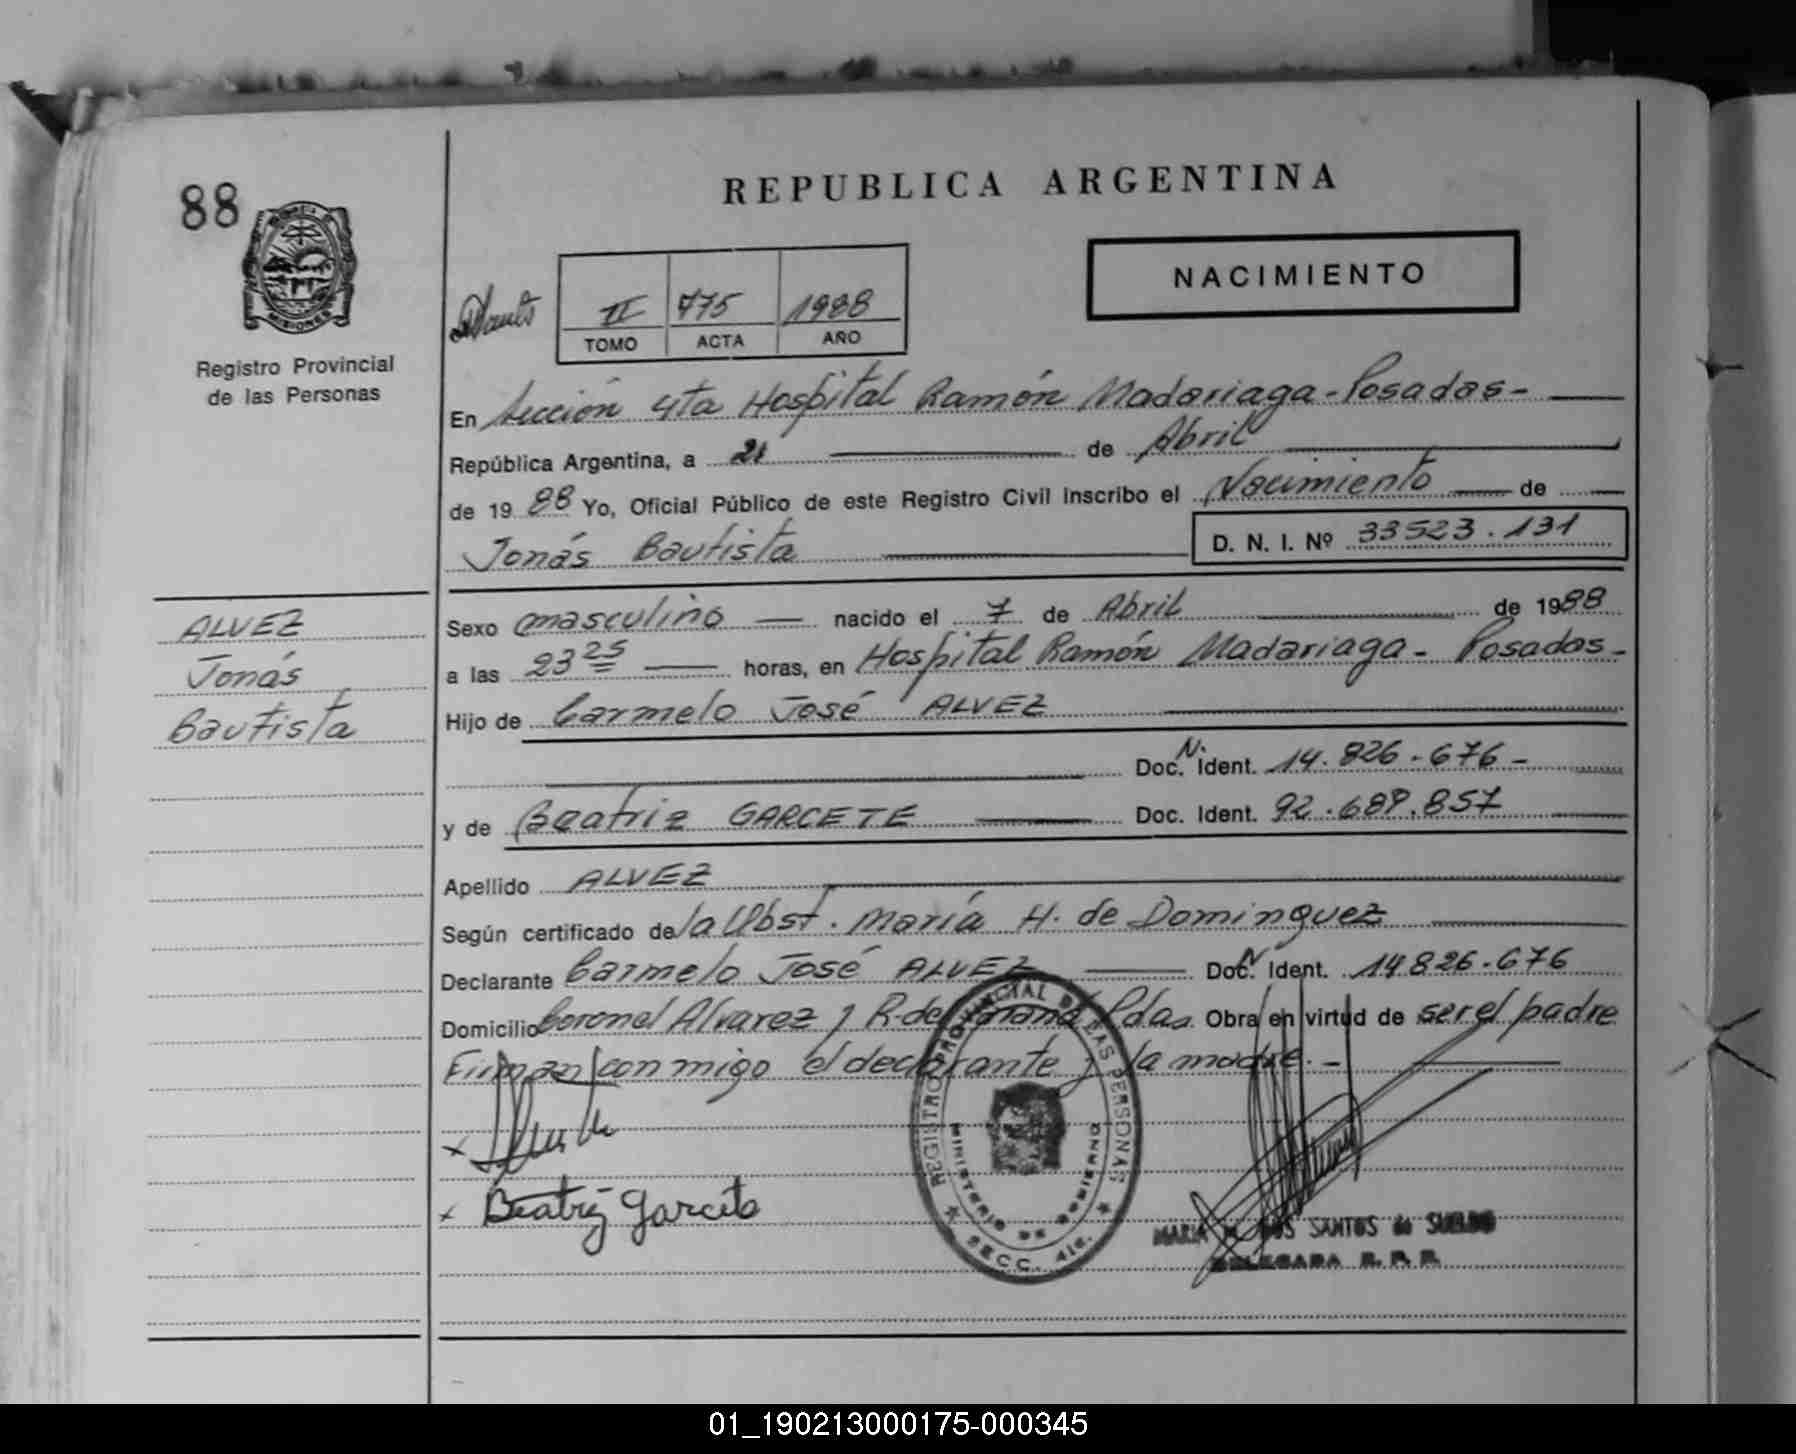 88
REPUBLICA ARGENTINA
NACIMIENTO
MISIONES
Registro Provincial
de las Personas
II 775 1988
TOMO ACTA AÑO
En Sección 4ta Hospital Ramón Madariaga-Posadas-
República Argentina, a 21 de Abril
de 1988 Yo, Oficial Público de este Registro Civil Inscribo el Nacimiento de
Jonás Bautista D. N. I. Nº 33523.131
ALVEZ
Jonás
Bautista
Sexo masculino nacido el 7 de Abril de 1988
a las 23 25 horas, en Hospital Ramón Madariaga - Posadas-
Hijo de Carmelo José ALVEZ
Doc. N. Ident. 14.826.676-
y de Beatriz GARCETE Doc. Ident. 92.689.857
Apellido ALVEZ
Según certificado de la Obst. María H. de Dominguez
Declarante Carmelo José ALVEZ Doc. N. Ident. 14.826.676
Domicilio Coronel Alvarez y R. de Pdas. Obra en virtud de ser el padre
Firman conmigo el declarante y la madre.-
x
x Beatriz Garcete
REGISTRO PROVINCIAL DE LAS PERSONAS
MINISTERIO DE GOBIERNO
SECC. 4ta.
MARIA DOS SANTOS de SUELDO
DELEGADA R. P. P.
01_190213000175-000345